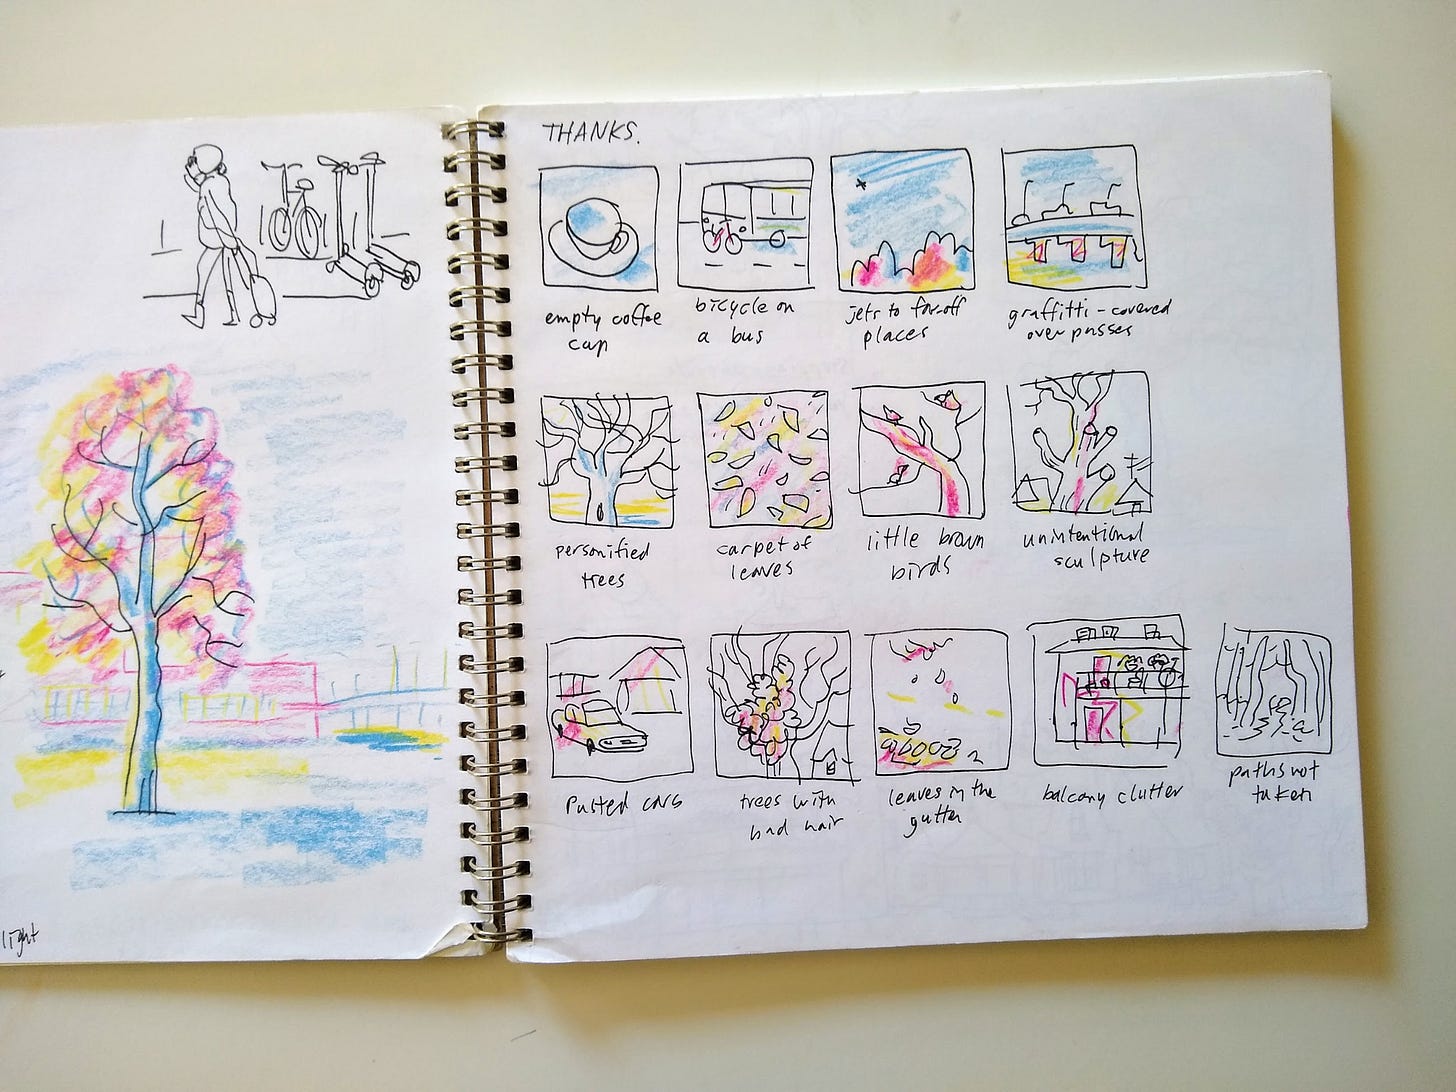 THANKS.
empty coffee
cup
bicycle on
a bus
jets to far-off
places
graffitti-covered
overpasses
personified
trees
carpet of
leaves
little brown
birds
unintentional
sculpture
rusted cars
trees with
bad hair
leaves in the
gutter
balcony clutter
paths not
taken
light